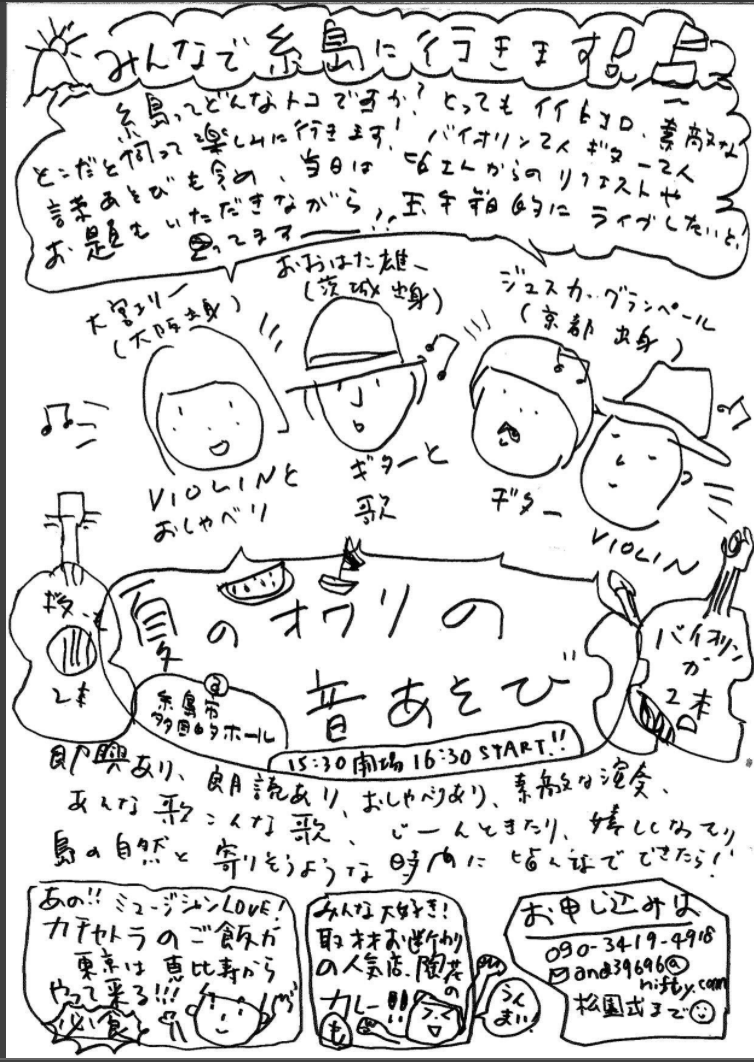 みんなで糸島に行きます!
糸島ってどんなトコですか?とってもイイトコロ、素敵な
とこだと伺って楽しみに行きます!バイオリン2人ギター2人
言葉あそびも含め、当日は皆さんからのリクエストや
お題もいただきながら、玉手箱的にライブしたいと!
思ってますー!!
大宮エリー
(大阪出身)
おおはた雄一
(茨城出身)
ジュスカ・グランペール
(京都出身)
VIOLINと
おしゃべり
ギターと
歌
ギター
VIOLIN
ギター
2本
バイオリン
が
2本
夏のオワリの
音あそび
@
糸島市
多目的ホール
15:30開場 16:30 START!!
即興あり、朗読あり、おしゃべりあり、素敵な演奏、
あんな歌こんな歌、じーんときたり、嬉しくなったり
島の自然と寄りそうような時間に皆んなでできたら!
あの!!ミュージシャンLOVE!
カチャトラのご飯が
東京は恵比寿から
やって来る!!!
必食
みんな大好き!
取材お断わり
の人気店、陶花の
カレー!!
も
うん
まい!
お申し込みは
090-3419-4918
and39696@
nifty.com
松園式まで